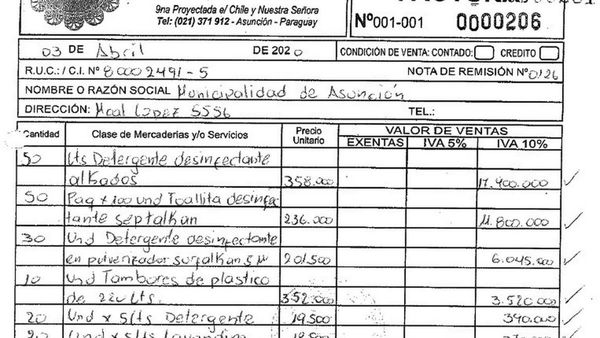 9na Proyectada e/ Chile y Nuestra Señora
Tel.: (021) 371 912 - Asunción - Paraguay
Nº001-001 0000206
03 de Abril DE 2020 CONDICIÓN DE VENTA: CONTADO: CREDITO
R.U.C./C.I. Nº 80002491-5 NOTA DE REMISIÓN Nº 0126
NOMBRE O RAZÓN SOCIAL Municipalidad de Asunción
DIRECCIÓN: Mcal Lopez 5556 TEL.:
Cantidad Clase de Mercaderías y/o Servicios Precio Unitario VALOR DE VENTAS
EXENTAS IVA 5% IVA 10%
50 Lts Detergente desinfectante
alkados 358.000 17.900.000
50 Paq x 100 und Toallita desinfec
tante septalkan 236.000 11.800.000
30 Und Detergente desinfectante
en pulverizador surfalkan 201.500 6.045.000
10 Und Tambores de plastico
de 220 Lts. 352.000 3.520.000
20 Und x 5lts Detergente 19.500 390.000
20 Und x 5lts Lavandina